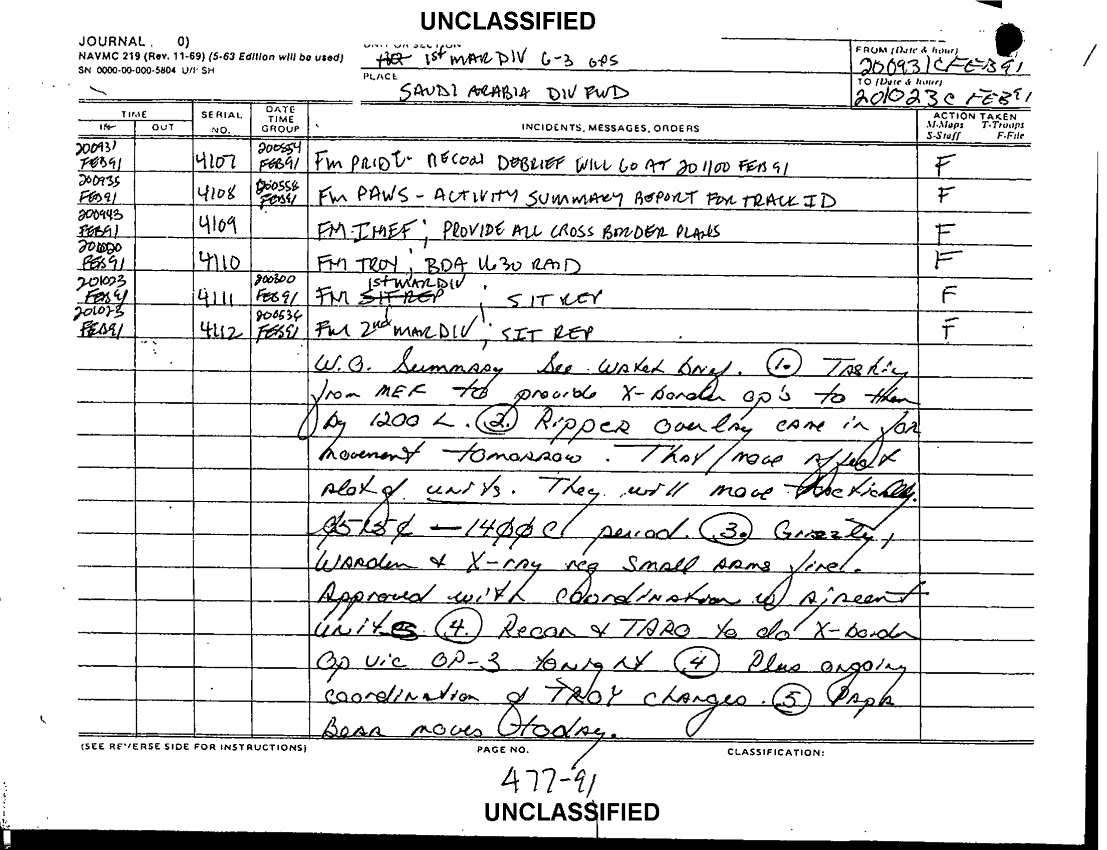 UNCLASSIFIED
JOURNAL
NAVMC 219 (Rev. 11-69) (5-63 Edition will be used)
SN 0000-00-000-5804 U/I SH
UNIT OR SECTION
1st MAR DIV G-3 OPS
PLACE
SAUDI ARABIA DIV FWD
FROM (Date & hour)
200931C FEB 91
TO (Date & hour)
201023C FEB 91
TIME
IN OUT
SERIAL NO.
DATE TIME GROUP
INCIDENTS, MESSAGES, ORDERS
ACTION TAKEN
M-Maps T-Troops
S-Staff F-File
200931 FEB 91 4107 200554 FEB 91 FM - RECON DEBRIEF WILL GO AT 201100 FEB 91 F
200935 FEB 91 4108 200558 FEB 91 FM PAWS - ACTIVITY SUMMARY REPORT FOR TRACK ID F
200943 FEB 91 4109 FM I MEF; PROVIDE ALL CROSS BORDER PLANS F
201020 FEB 91 4110 FM TROY; BDA 1630 RAID F
201023 FEB 91 4111 200300 FEB 91 FM SIT REP 1st MAR DIV; SIT REP F
201023 FEB 91 4112 200534 FEB 91 FM 2nd MAR DIV; SIT REP F
W.O. Summary See watch brief. 1. Tasking
from MEF to provide X-border op's to them
by 1200 L. 2. Ripper overlay came in for
movement tomorrow. That move affect
alot of units. They will move tactically.
0515C — 1400C period. 3. Grizzly,
Warden & X-ray req small arms fire.
Approved with coordination of ajacent
units 4. Recon & TARO to do X-border
Op vic OP-3 tonight 4 Plus ongoing
coordination of TROY changes. 5 Papa
Bear moves today.
(SEE REVERSE SIDE FOR INSTRUCTIONS)
PAGE NO.
CLASSIFICATION:
477-91
UNCLASSIFIED